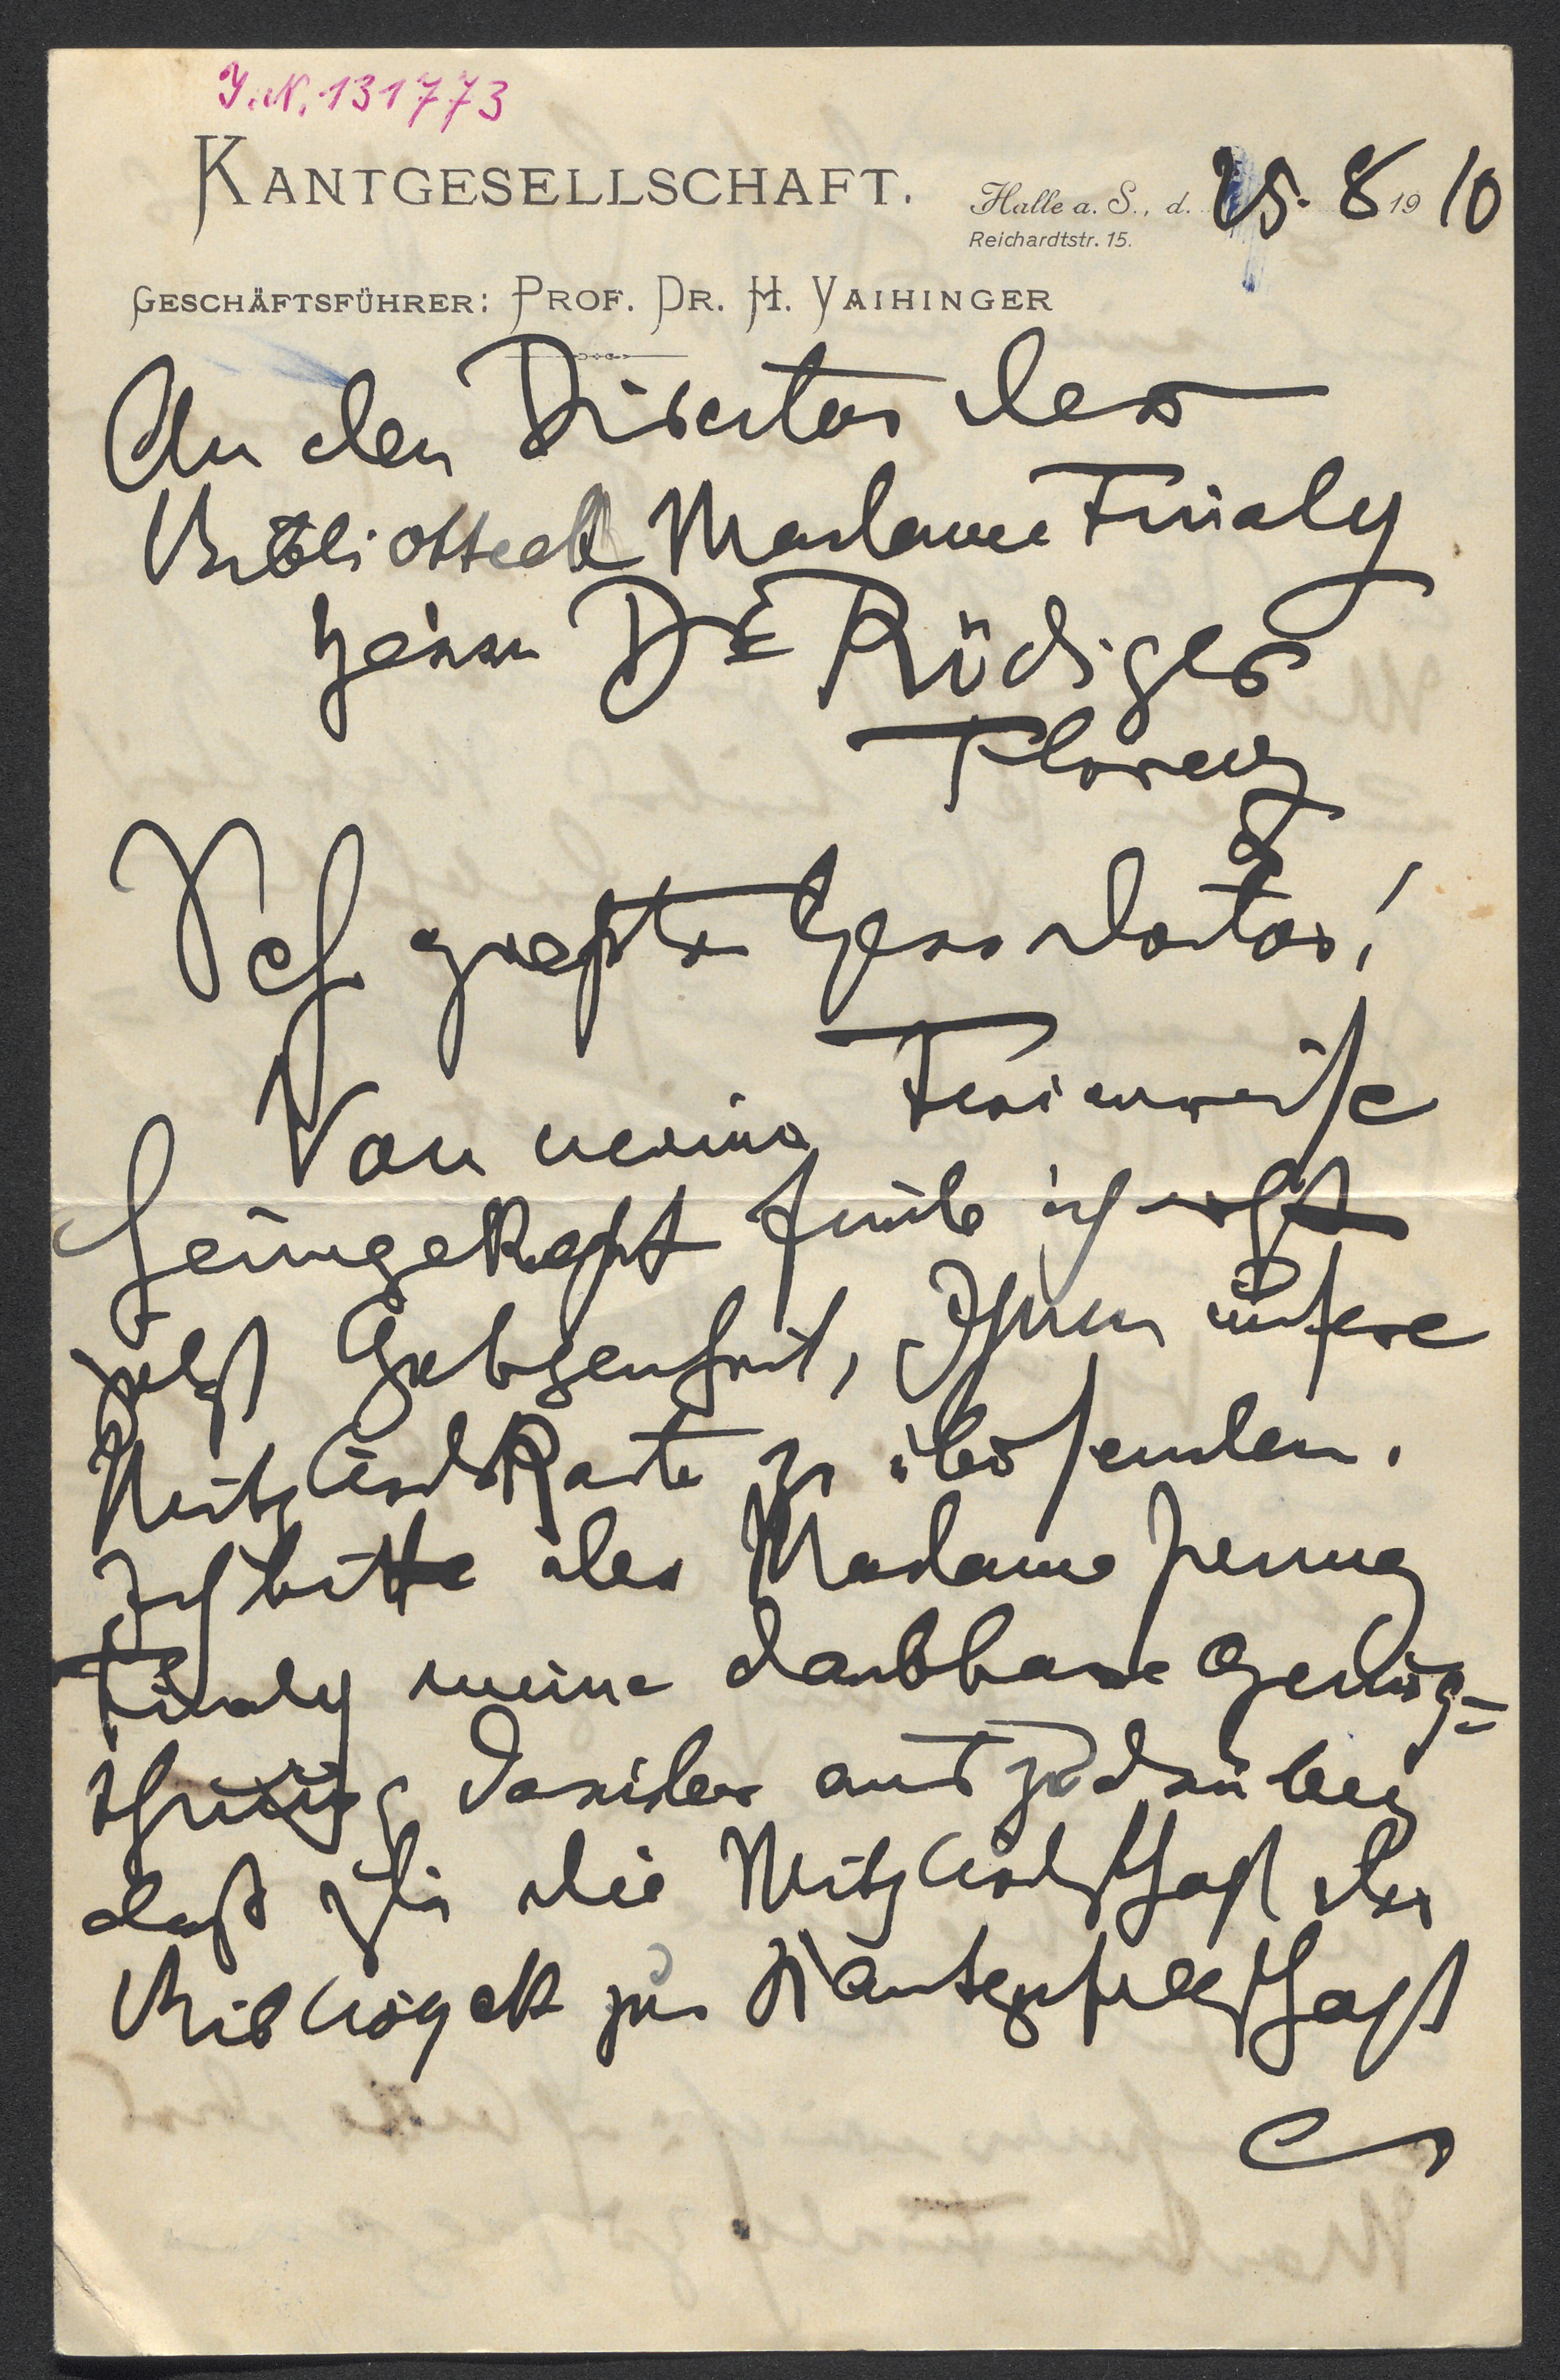 I.N. 131773
KANTGESELLSCHAFT.
Halle a. S., d. 25. 8 1910
Reichardtstr. 15.
GESCHÄFTSFÜHRER: PROF. DR. H. VAIHINGER
An den Director der
Bibliotheck Madame Finaly
Herrn Dr Rüdiger
Florenz
Sehr geehrter Herr Doctor!
Von meiner Ferienreise
heimgekehrt finde ich erst
jetzt Gelegenheit, Ihnen unsere
Mitgliedskarte zu übersenden.
Ich bitte der Madame Jenny
Finaly meine dankbare Genug=
thuung darüber auszudrücken
daß Sie die Mitgliedschaft der
zur Kantgesellschaft